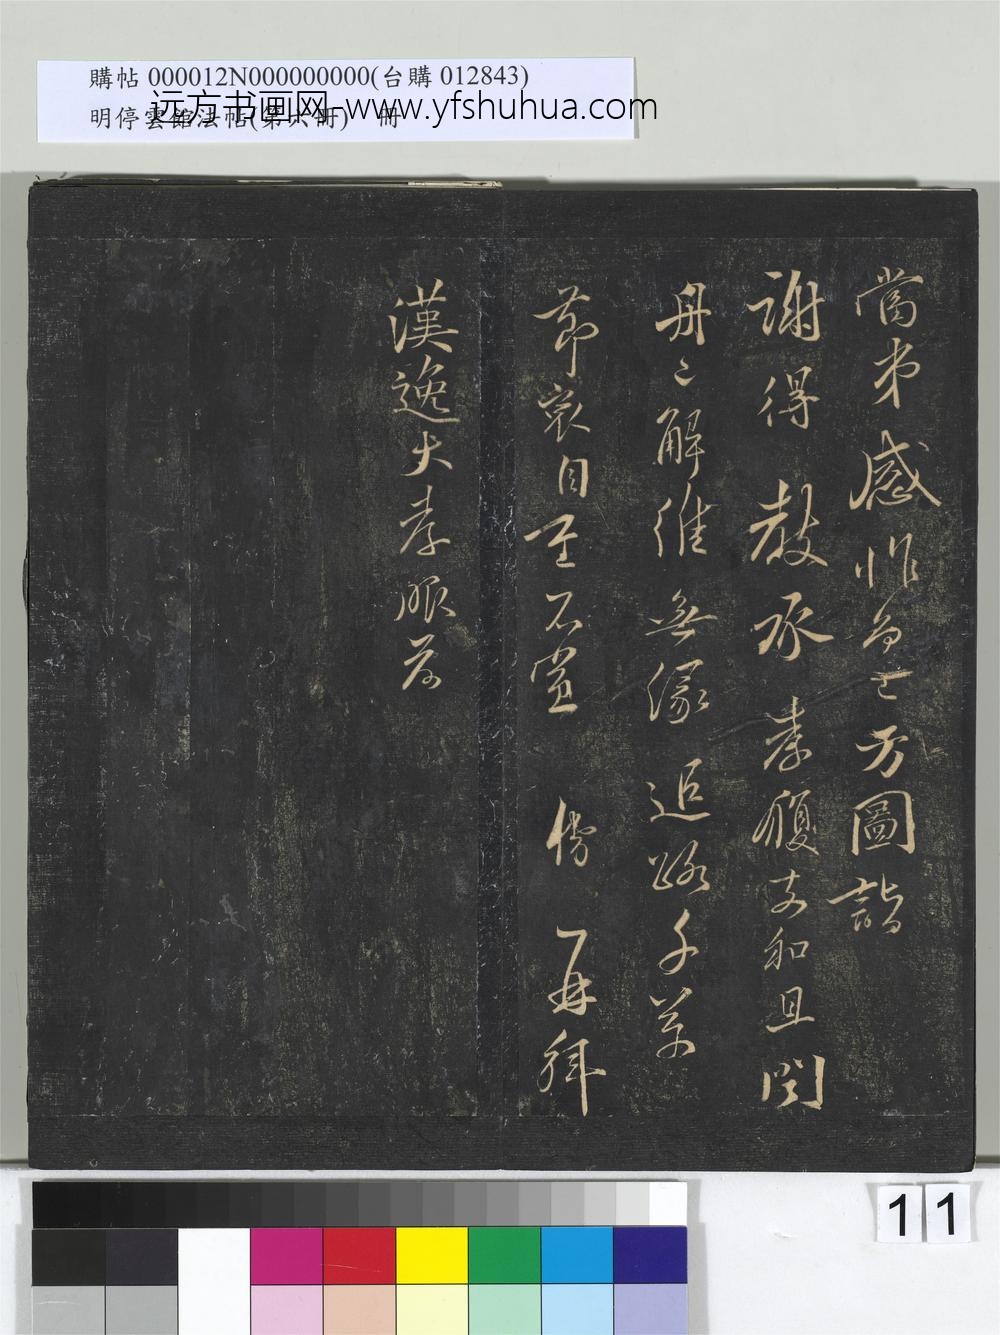 購帖 000012N000000000(台購 012843)
明停雲館法帖(第六冊) 冊
远方书画网-www.yfshuhua.com
當第感怍而已方圖詣
謝得教承孝履支和且闋
舟〻解維無緣追路千萬
節哀自重不宣 倩 再拜
漢逸大孝服前
11